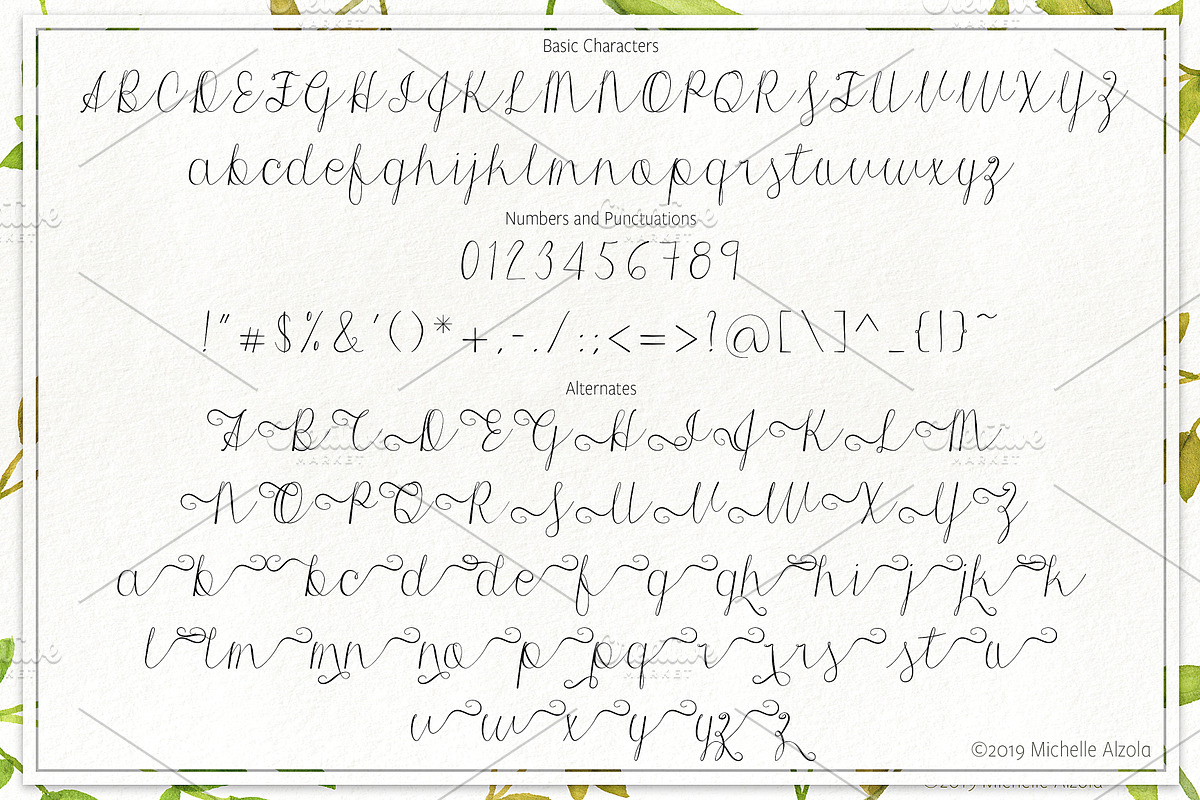 Basic Characters
A B C D E F G H I J K L M N O P Q R S T U V W X Y Z
a b c d e f g h i j k l m n o p q r s t u v w x y z
Numbers and Punctuations
0 1 2 3 4 5 6 7 8 9
! " # $ % & ' ( ) * + , - . / : ; < = > ? @ [ \ ] ^ _ { | } ~
Alternates
A B C D E G H I J K L M
N O P Q R S U V W X Y Z
a b b c d d e f g g h h i j j k k
l l m m n n o p p q r r s s t u
v w x y y z z
©2019 Michelle Alzola
©2019 Michelle Alzola
Creative Market